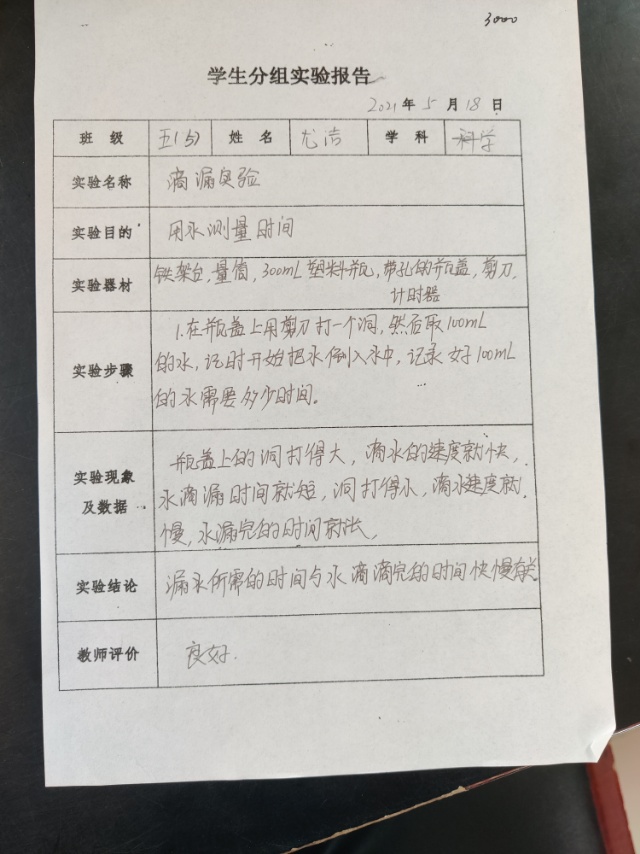 3000
学生分组实验报告
2021年5月18日
班 级 五(5) 姓 名 尤洁 学 科 科学
实验名称 滴漏实验
实验目的 用水测量时间
实验器材 铁架台,量筒,300mL塑料瓶,带孔的瓶盖,剪刀,
计时器
实验步骤 1.在瓶盖上用剪刀打一个洞,然后取100mL
的水,记时开始把水倒入水中,记录好100mL
的水需要多少时间。
实验现象
及数据
瓶盖上的洞打得大,滴水的速度就快,
水滴漏时间就短,洞打得小,滴水速度就
慢,水漏完的时间就长,
实验结论 漏水所需的时间与水滴滴完的时间快慢有关
教师评价 良好.